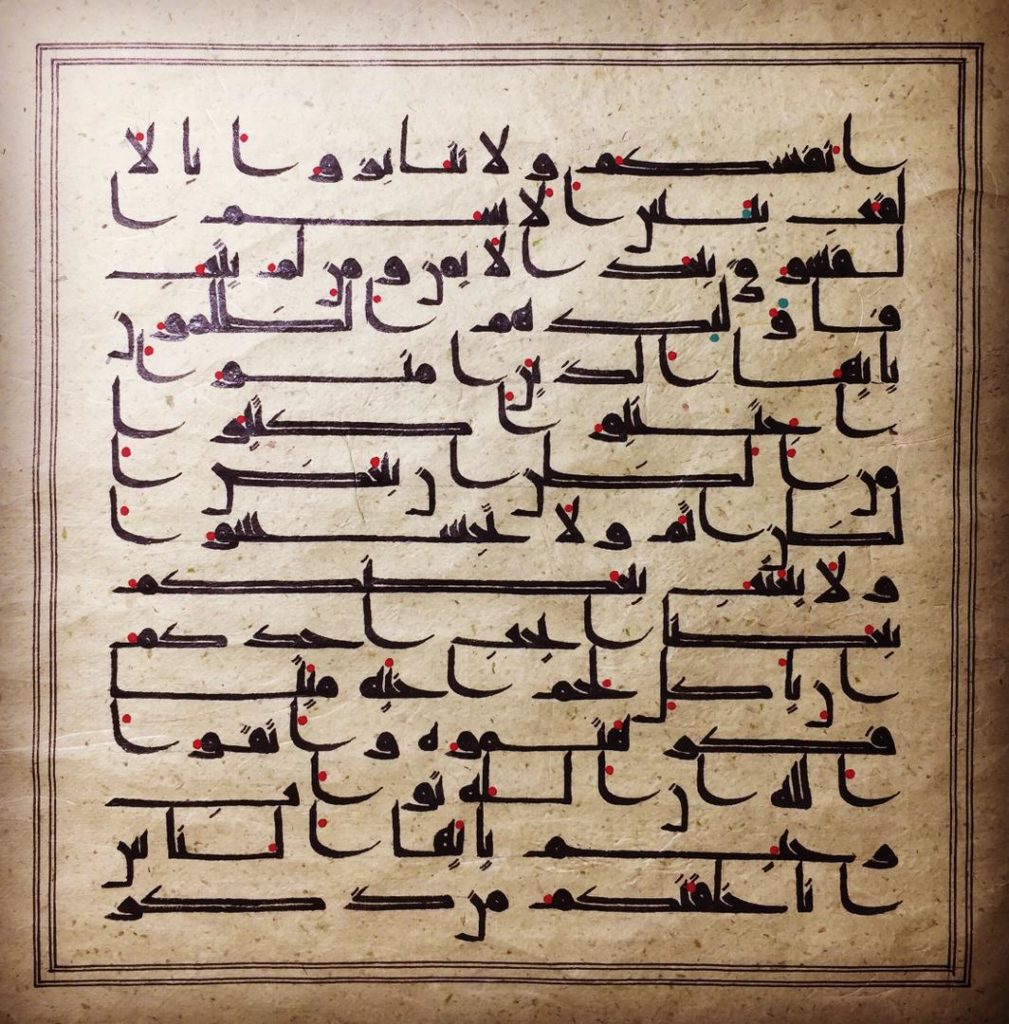 انفسكم ولا تنابزوا بالا
لقب بئس الاسم ا
لفسوق بعد الايمن ومن لم يتب
فاولئك هم الظلمون
يايها الذين امنوا
اجتنبوا كثيرا
من الظن ان بعض ا
لظن اثم ولا تجسسوا
ولا يغتب بعضكم
بعضا ايحب احدكم
ان ياكل لحم اخيه ميتا
فكرهتموه واتقوا
الله ان الله تواب
رحيم يايها الناس
انا خلقنكم من ذكر